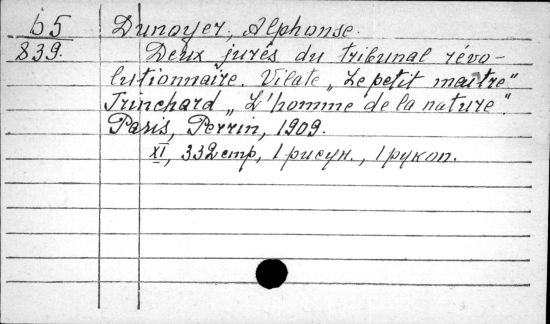 б5 Dunoyer, Alphonse.
839. Deux jurés du tribunal révo-
lutionnaire. Vilate „Le petit maître"
Trinchard „L'homme de la nature".
Paris, Perrin, 1909.
XI, 332 стр, 1 рисун., 1 рукоп.